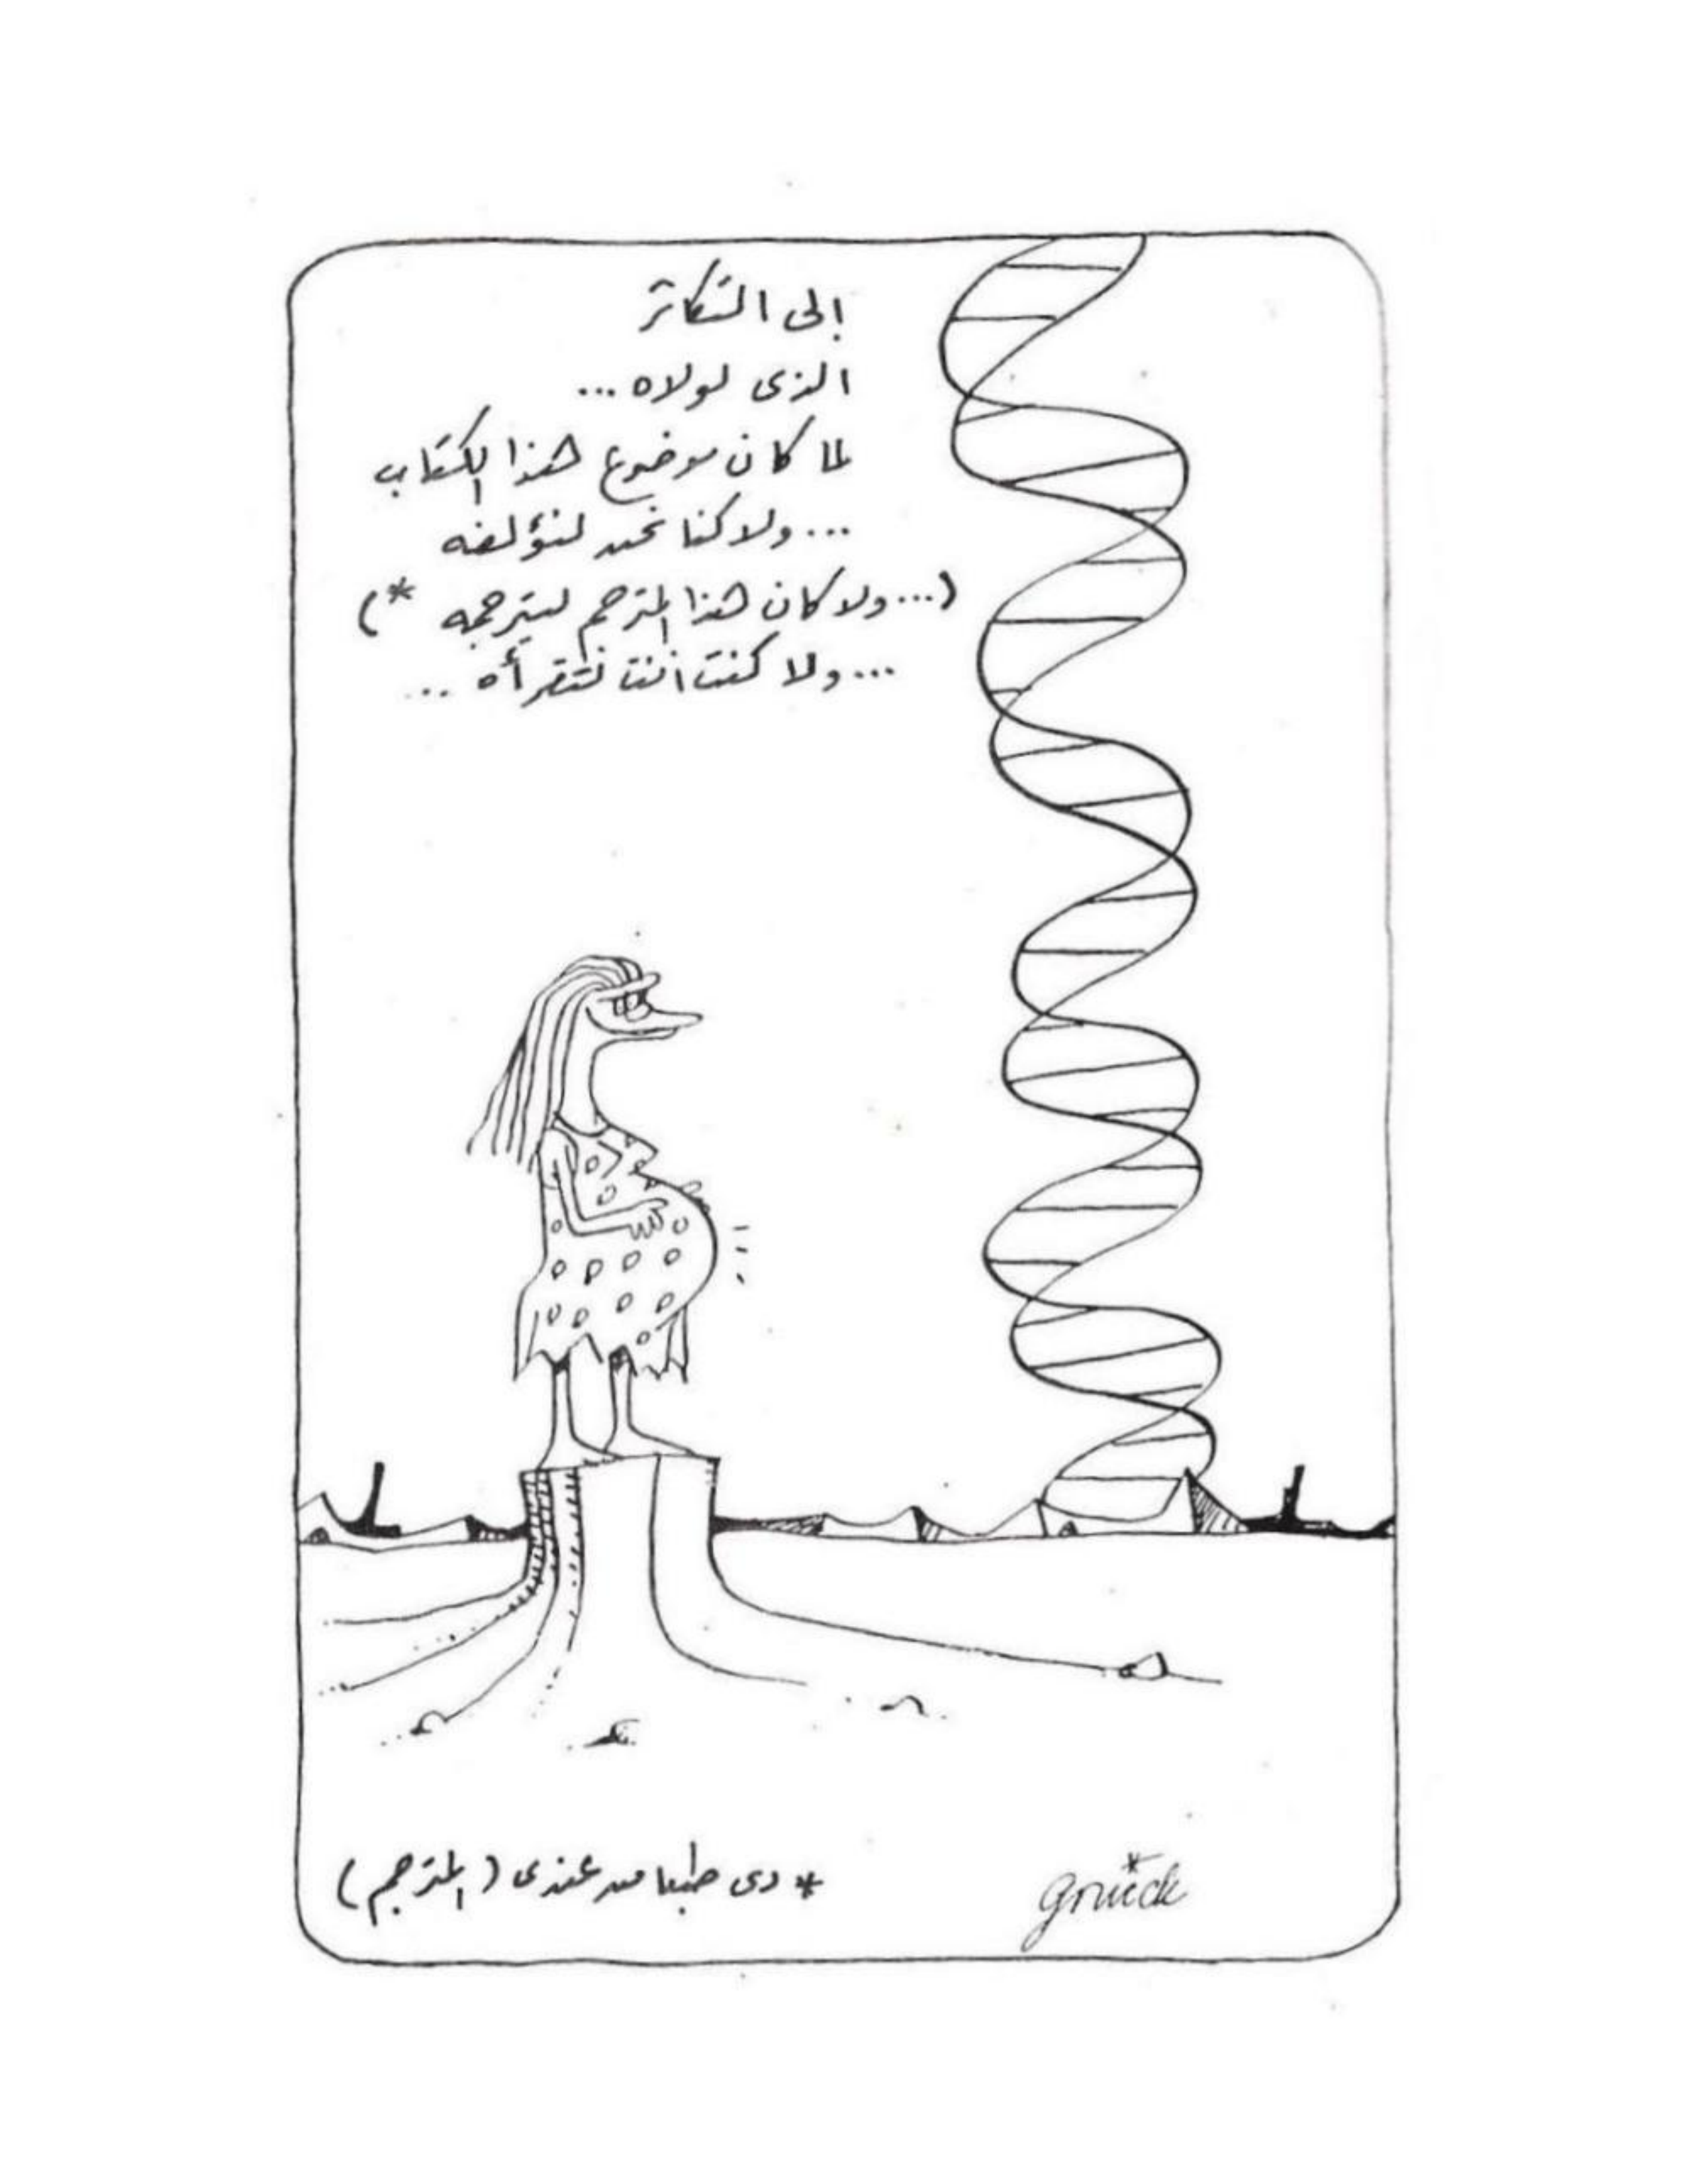 إلى التكاثر
الذى لولاه ...
لما كان موضوع هذا الكتاب
... ولا كنا نحن لنؤلفه
(... ولا كان هذا المترجم ليترجمه *)
... ولا كنت أنت لتقرأه ..
* دى طبعا من عندى (المترجم)